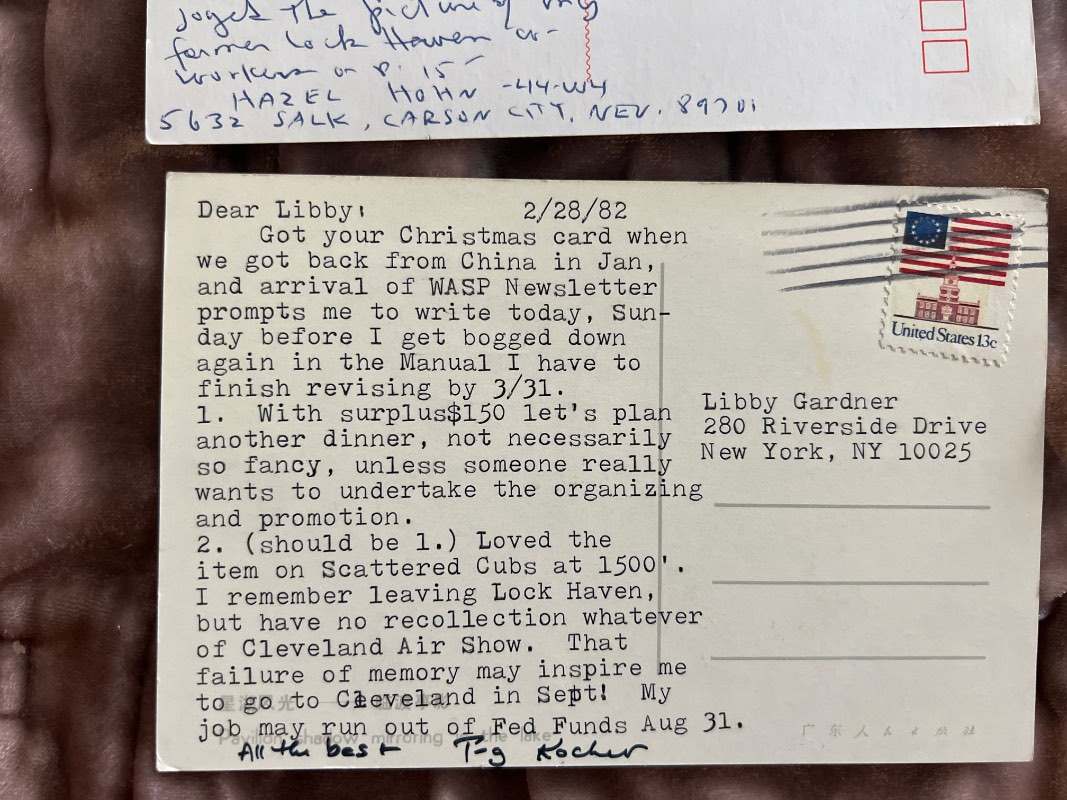 forget the picture of my
former Lock Haven co-
workers on P. 15-
HAZEL HOHN -44-W4
5632 SALK, CARSON CITY, NEV. 89701
Dear Libby: 2/28/82
Got your Christmas card when
we got back from China in Jan,
and arrival of WASP Newsletter
prompts me to write today, Sun-
day before I get bogged down
again in the Manual I have to
finish revising by 3/31.
1. With surplus$150 let's plan
another dinner, not necessarily
so fancy, unless someone really
wants to undertake the organizing
and promotion.
2. (should be 1.) Loved the
item on Scattered Cubs at 1500'.
I remember leaving Lock Haven,
but have no recollection whatever
of Cleveland Air Show. That
failure of memory may inspire me
to go to Cleveland in Sept! My
job may run out of Fed Funds Aug 31.
Pavilion shadow mirroring the lake
All the best Kocher
United States 13c
Libby Gardner
280 Riverside Drive
New York, NY 10025
广东人民出版社